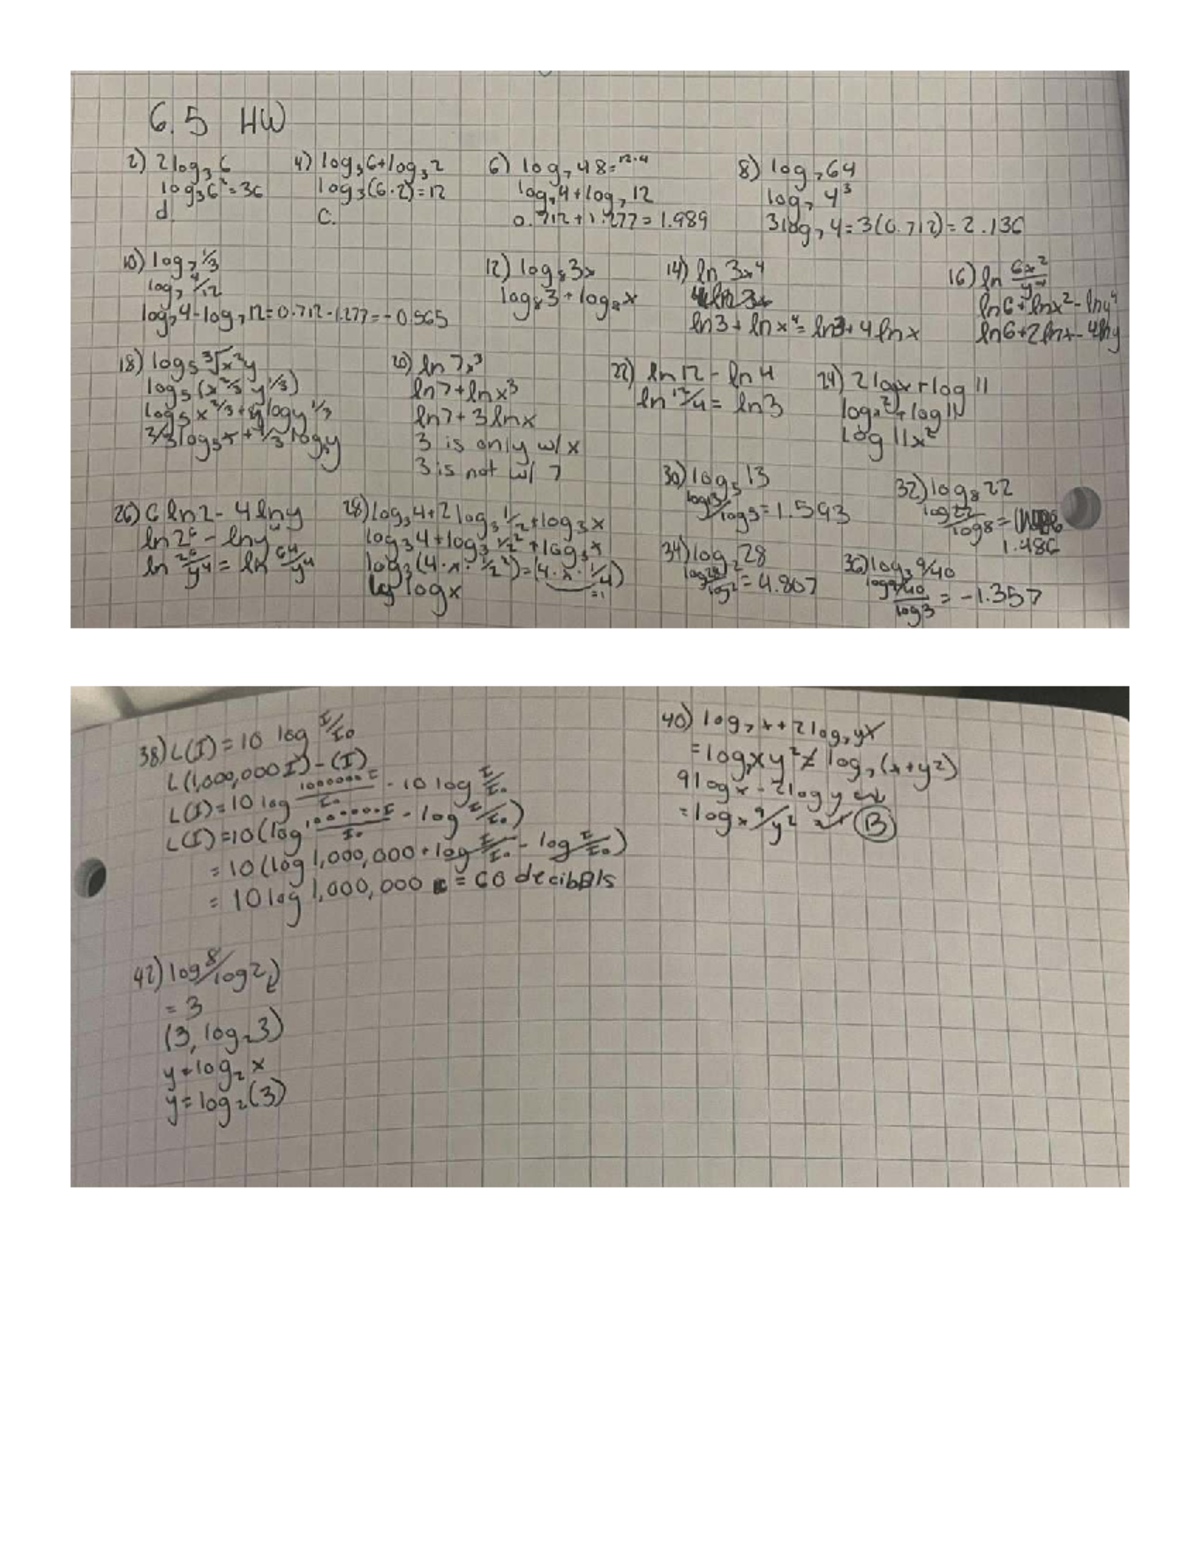 6.5 HW
2) 2log₃6
log₃6²=36
d
4) log₃6+log₃2
log₃(6·2)=12
C.
6) log₇48=12·4
log₇4+log₇12
0.712+1.277=1.989
8) log₇64
log₇4³
3log₇4=3(0.712)=2.136
10) log₇1/3
log₇4/12
log₇4-log₇12=0.712-1.277=-0.565
12) log₈3x
log₈3+log₈x
14) ln3x⁴
ln3+lnx⁴=ln3+4lnx
16) ln 6x²/y⁴
ln6+lnx²-lny⁴
ln6+2lnx-4lny
18) log₅∛x²y
log₅(x^2/3 y^1/3)
log₅x^2/3+logy^1/3
2/3log₅x+1/3log₅y
20) ln7x³
ln7+lnx³
ln7+3lnx
3 is only w/x
3 is not w/ 7
22) ln12-ln4
ln12/4=ln3
24) 2logx+log11
logx²+log11
log11x²
26) 6ln2-4lny
ln2⁶-lny⁴
ln 2⁶/y⁴=ln 64/y⁴
28) log₃4+2log₃1/2+log₃x
log₃4+log₃1/2²+log₃x
log₃(4·x·1/2²)=(4·x·1/4)
=1
logx
30) log₅13
log13/log5=1.593
32) log₈22
log22/log8=
1.486
34) log₂28
log28/log2=4.807
36) log₃9/40
log9/40/log3=-1.357
38) L(I)=10 log I/I₀
L(1,000,000I)-(I)
L(I)=10log 1000000I/I₀-10log I/I₀
L(I)=10(log 1000000I/I₀-log I/I₀)
=10(log1,000,000+log I/I₀-log I/I₀)
=10log1,000,000=60 decibels
40) log₇x+2log₇y
=log₇xy²≠log₇(x+y²)
9logx-2logy
=logx⁹/y² B
42) log8/log2
=3
(3,log₂3)
y=log₂x
y=log₂(3)